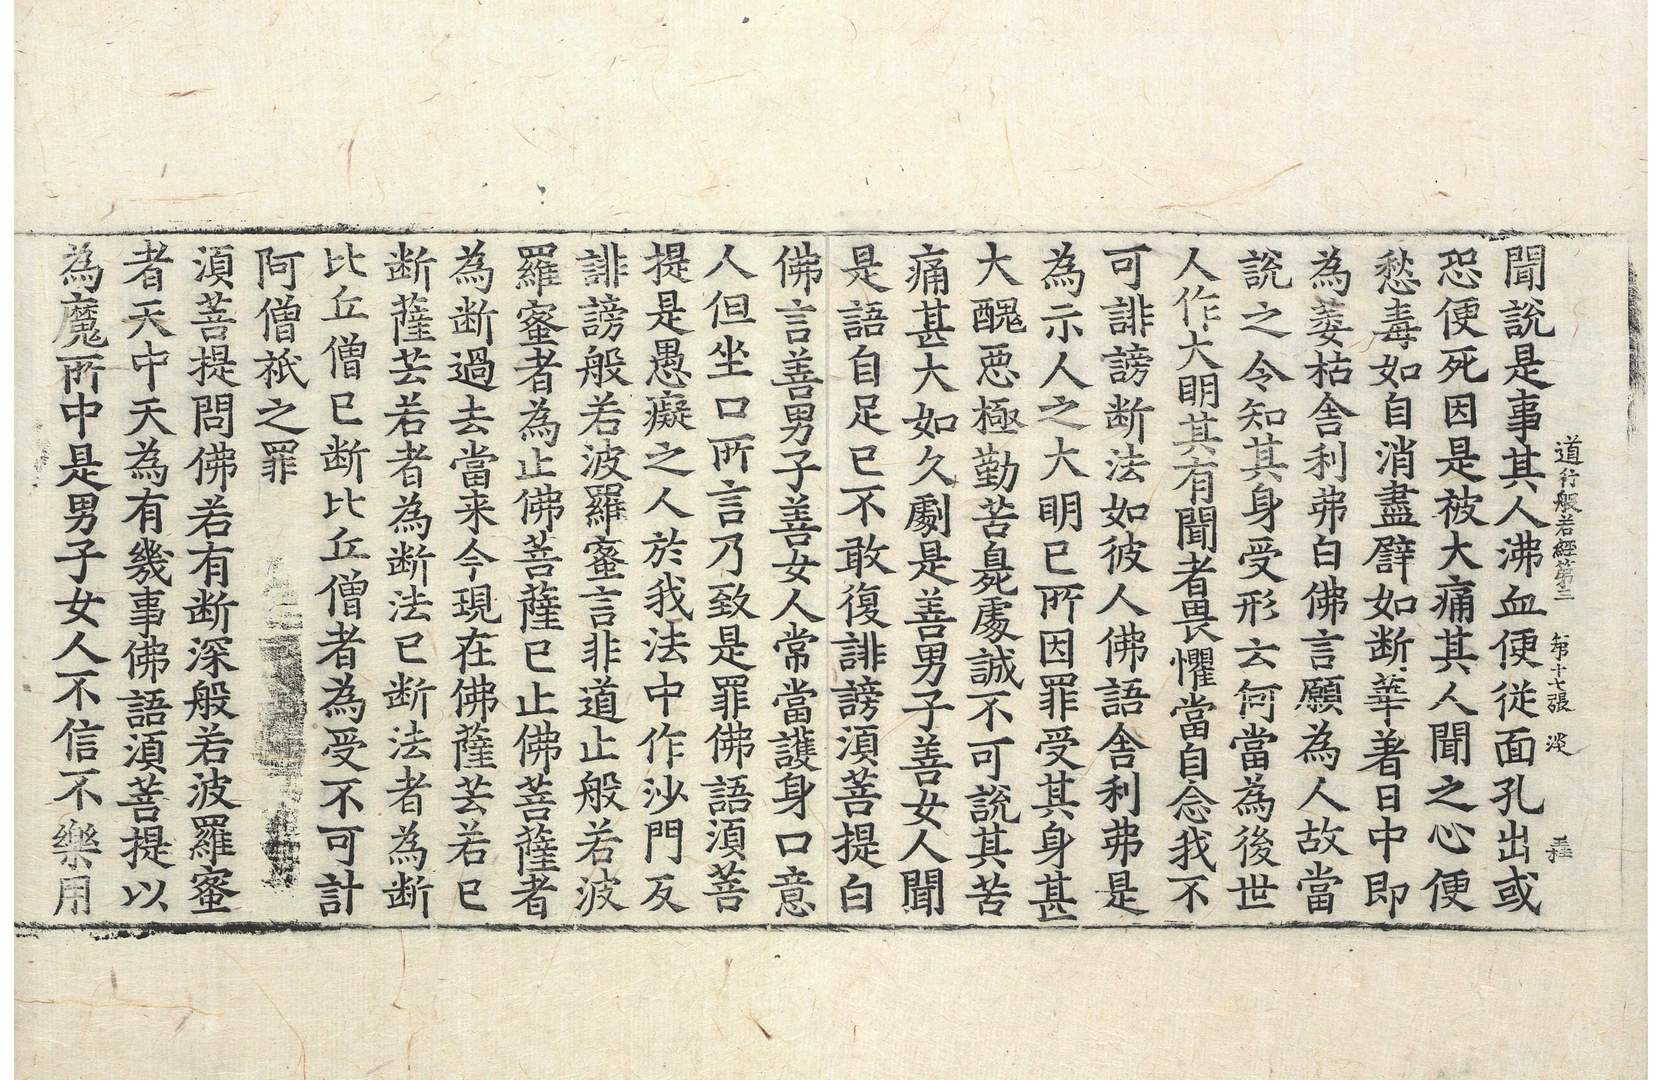 道行般若經第三 第十七張 淡
聞說是事其人沸血便從面孔出或
恐便死因是被大痛其人聞之心便
愁毒如自消盡譬如断華著日中即
為萎枯舍利弗白佛言願為人故當
說之令知其身受形云何當為後世
人作大明其有聞者畏懼當自念我不
可誹謗断法如彼人佛語舍利弗是
為示人之大明已所因罪受其身甚
大醜惡極勤苦臭處誠不可說其苦
痛甚大如久劇是善男子善女人聞
是語自足已不敢復誹謗湏菩提白
佛言善男子善女人常當護身口意
人但坐口所言乃致是罪佛語湏菩
提是愚癡之人於我法中作沙門反
誹謗般若波羅蜜言非道止般若波
羅蜜者為止佛菩薩已止佛菩薩者
為断過去當来今現在佛薩芸若已
断薩芸若者為断法已断法者為断
比丘僧已断比丘僧者為受不可計
阿僧祇之罪
湏菩提問佛若有断深般若波羅蜜
者天中天為有幾事佛語湏菩提以
為魔所中是男子女人不信不樂用